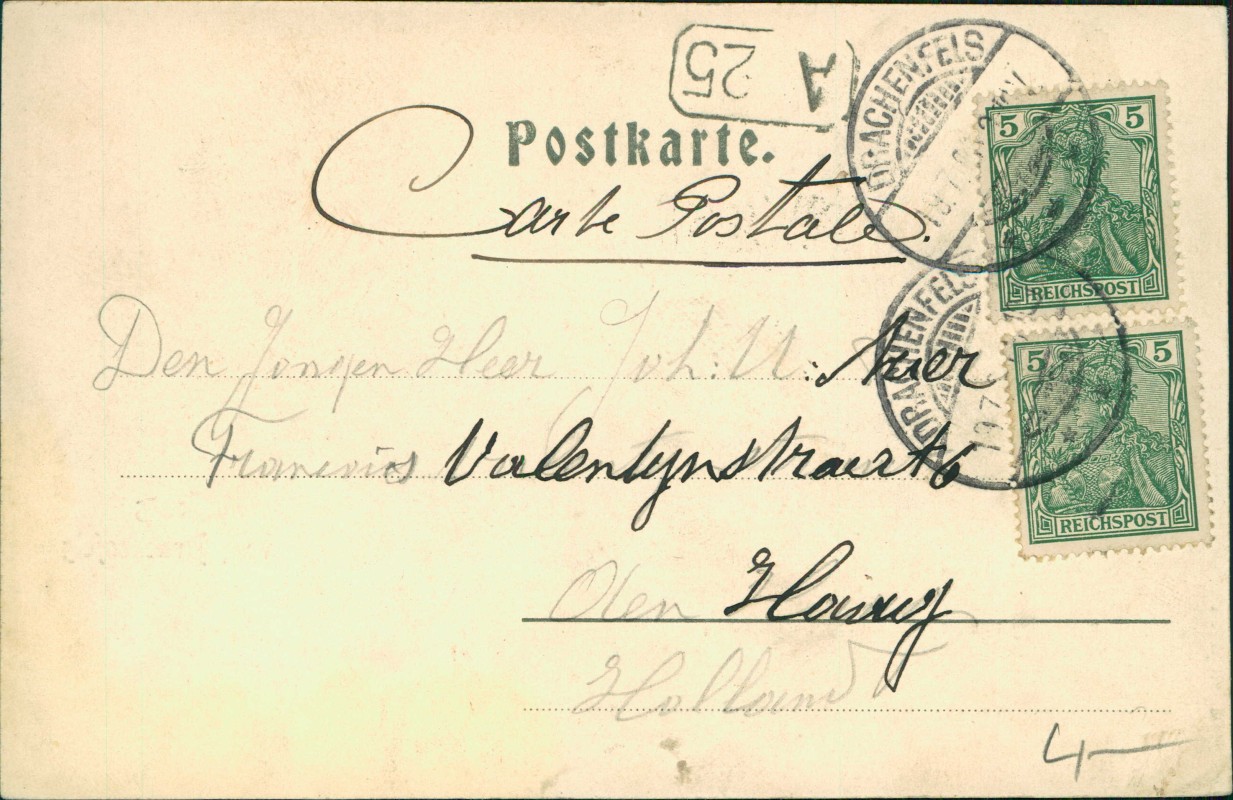 A 25
Postkarte.
Carte Postale.
DRACHENFELS
5 5
REICHSPOST
Den Jongen Heer Joh: U:
DRACHENFELS
19.7
5 5
REICHSPOST
Francois Valentynstraat 6
den Haag
Holland
4